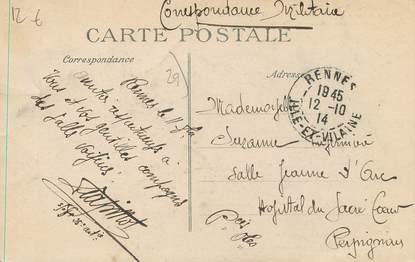 12 €
Correspondance Militaire
CARTE POSTALE
Correspondance
29
Adresse
RENNES
1945
12-10
14
ILLE-ET-VILAINE
Rennes le 11
respectueuse à
Vous et vos gentilles compagnes
des salles
Mademoiselle
Suzanne
Salle Jeanne D'Arc
Hopital du Sacré Coeur
Perpignan